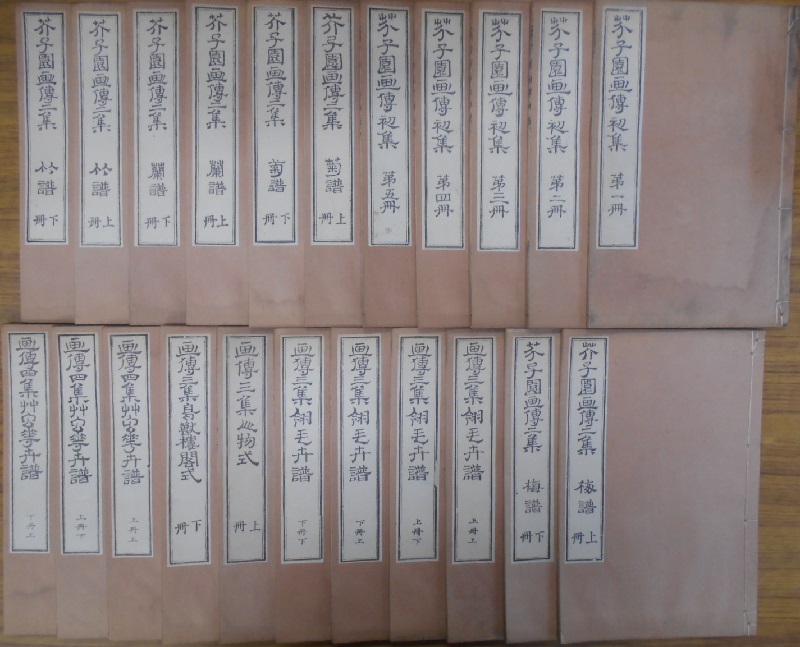 芥子園画傳初集 第一冊
芥子園画傳初集 第二冊
芥子園画傳初集 第三冊
芥子園画傳初集 第四冊
芥子園画傳初集 第五冊
芥子園画傳二集 菊譜 上冊
芥子園画傳二集 菊譜 下冊
芥子園画傳二集 蘭譜 上冊
芥子園画傳二集 蘭譜 下冊
芥子園画傳二集 竹譜 上冊
芥子園画傳二集 竹譜 下冊
芥子園画傳二集 梅譜 上冊
芥子園画傳二集 梅譜 下冊
画傳三集翎毛卉譜 上冊上
画傳三集翎毛卉譜 上冊下
画傳三集翎毛卉譜 下冊上
画傳三集翎毛卉譜 下冊下
画傳三集 物式 上冊
画傳三集鳥獸樓閣式 下冊
画傳四集艸虫華卉譜 上冊上
画傳四集艸虫華卉譜 上冊下
画傳四集艸虫華卉譜 下冊上